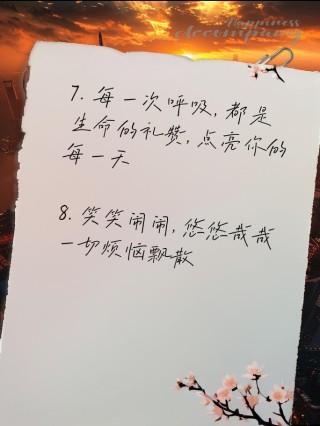 Happiness
accompany
7. 每一次呼吸, 都是
生命的礼赞, 点亮你的
每一天
8. 笑笑闹闹, 悠悠哉哉
一切烦恼飘散